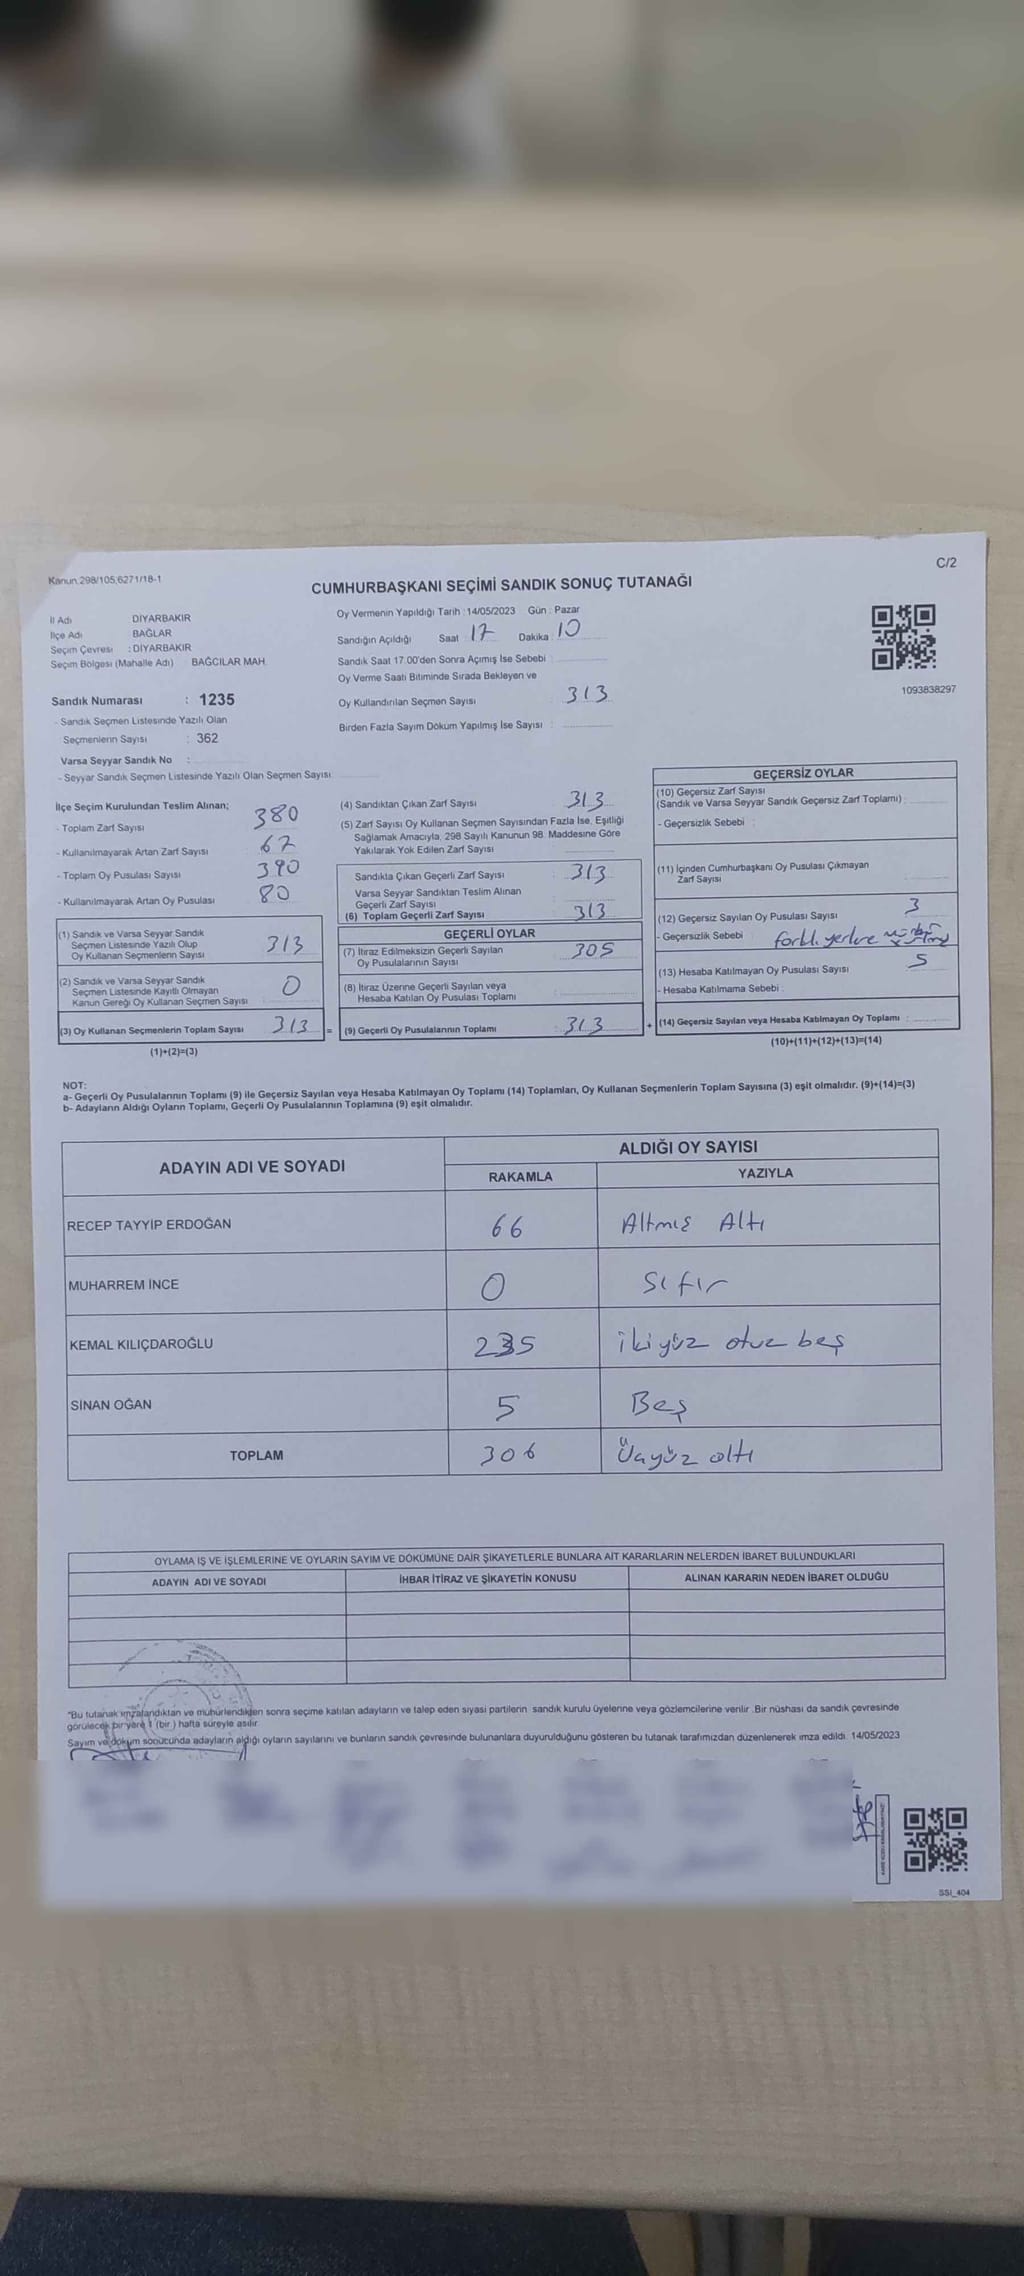 Kanun.298/105,6271/18-1
C/2
CUMHURBAŞKANI SEÇİMİ SANDIK SONUÇ TUTANAĞI
İl Adı DİYARBAKIR
İlçe Adı BAĞLAR
Seçim Çevresi : DİYARBAKIR
Seçim Bölgesi (Mahalle Adı) BAĞCILAR MAH.
Sandık Numarası : 1235
- Sandık Seçmen Listesinde Yazılı Olan
Seçmenlerin Sayısı : 362
Varsa Seyyar Sandık No :
- Seyyar Sandık Seçmen Listesinde Yazılı Olan Seçmen Sayısı
Oy Vermenin Yapıldığı Tarih : 14/05/2023 Gün : Pazar
Sandığın Açıldığı Saat 17 Dakika 10
Sandık Saat 17.00'den Sonra Açımış İse Sebebi
Oy Verme Saati Bitiminde Sırada Bekleyen ve
Oy Kullandırılan Seçmen Sayısı 313
Birden Fazla Sayım Döküm Yapılmış İse Sayısı :
1093838297
İlçe Seçim Kurulundan Teslim Alınan;
- Toplam Zarf Sayısı 380
- Kullanılmayarak Artan Zarf Sayısı 67
- Toplam Oy Pusulası Sayısı 390
- Kullanılmayarak Artan Oy Pusulası 80
(1) Sandık ve Varsa Seyyar Sandık
Seçmen Listesinde Yazılı Olup
Oy Kullanan Seçmenlerin Sayısı 313
(2) Sandık ve Varsa Seyyar Sandık
Seçmen Listesinde Kayıtlı Olmayan
Kanun Gereği Oy Kullanan Seçmen Sayısı 0
(3) Oy Kullanan Seçmenlerin Toplam Sayısı 313 =
(1)+(2)=(3)
(4) Sandıktan Çıkan Zarf Sayısı 313
(5) Zarf Sayısı Oy Kullanan Seçmen Sayısından Fazla İse, Eşitliği
Sağlamak Amacıyla, 298 Sayılı Kanunun 98. Maddesine Göre
Yakılarak Yok Edilen Zarf Sayısı
Sandıkta Çıkan Geçerli Zarf Sayısı : 313
Varsa Seyyar Sandıktan Teslim Alınan
Geçerli Zarf Sayısı
(6) Toplam Geçerli Zarf Sayısı 313
GEÇERLİ OYLAR
(7) İtiraz Edilmeksizin Geçerli Sayılan
Oy Pusulalarının Sayısı 305
(8) İtiraz Üzerine Geçerli Sayılan veya
Hesaba Katılan Oy Pusulası Toplamı
(9) Geçerli Oy Pusulalarının Toplamı : 313 +
GEÇERSİZ OYLAR
(10) Geçersiz Zarf Sayısı
(Sandık ve Varsa Seyyar Sandık Geçersiz Zarf Toplamı) :
- Geçersizlik Sebebi :
(11) İçinden Cumhurbaşkanı Oy Pusulası Çıkmayan
Zarf Sayısı
(12) Geçersiz Sayılan Oy Pusulası Sayısı 3
- Geçersizlik Sebebi farklı yerlere
(13) Hesaba Katılmayan Oy Pusulası Sayısı 5
- Hesaba Katılmama Sebebi :
(14) Geçersiz Sayılan veya Hesaba Katılmayan Oy Toplamı :
(10)+(11)+(12)+(13)=(14)
NOT:
a- Geçerli Oy Pusulalarının Toplamı (9) ile Geçersiz Sayılan veya Hesaba Katılmayan Oy Toplamı (14) Toplamları, Oy Kullanan Seçmenlerin Toplam Sayısına (3) eşit olmalıdır. (9)+(14)=(3)
b- Adayların Aldığı Oyların Toplamı, Geçerli Oy Pusulalarının Toplamına (9) eşit olmalıdır.
ADAYIN ADI VE SOYADI ALDIĞI OY SAYISI
RAKAMLA YAZIYLA
RECEP TAYYİP ERDOĞAN 66 Altmış Altı
MUHARREM İNCE 0 Sıfır
KEMAL KILIÇDAROĞLU 235 ikiyüz otuz beş
SİNAN OĞAN 5 Beş
TOPLAM 306 Üçyüz altı
OYLAMA İŞ VE İŞLEMLERİNE VE OYLARIN SAYIM VE DÖKÜMÜNE DAİR ŞİKAYETLERLE BUNLARA AİT KARARLARIN NELERDEN İBARET BULUNDUKLARI
ADAYIN ADI VE SOYADI İHBAR İTİRAZ VE ŞİKAYETİN KONUSU ALINAN KARARIN NEDEN İBARET OLDUĞU
"Bu tutanak imzalandıktan ve mühürlendikten sonra seçime katılan adayların ve talep eden siyasi partilerin sandık kurulu üyelerine veya gözlemcilerine verilir. Bir nüshası da sandık çevresinde
görülecek bir yere 1 (bir) hafta süreyle asılır.
Sayım ve döküm sonucunda adayların aldığı oyların sayılarını ve bunların sandık çevresinde bulunanlara duyurulduğunu gösteren bu tutanak tarafımızdan düzenlenerek imza edildi. 14/05/2023
SSI_404